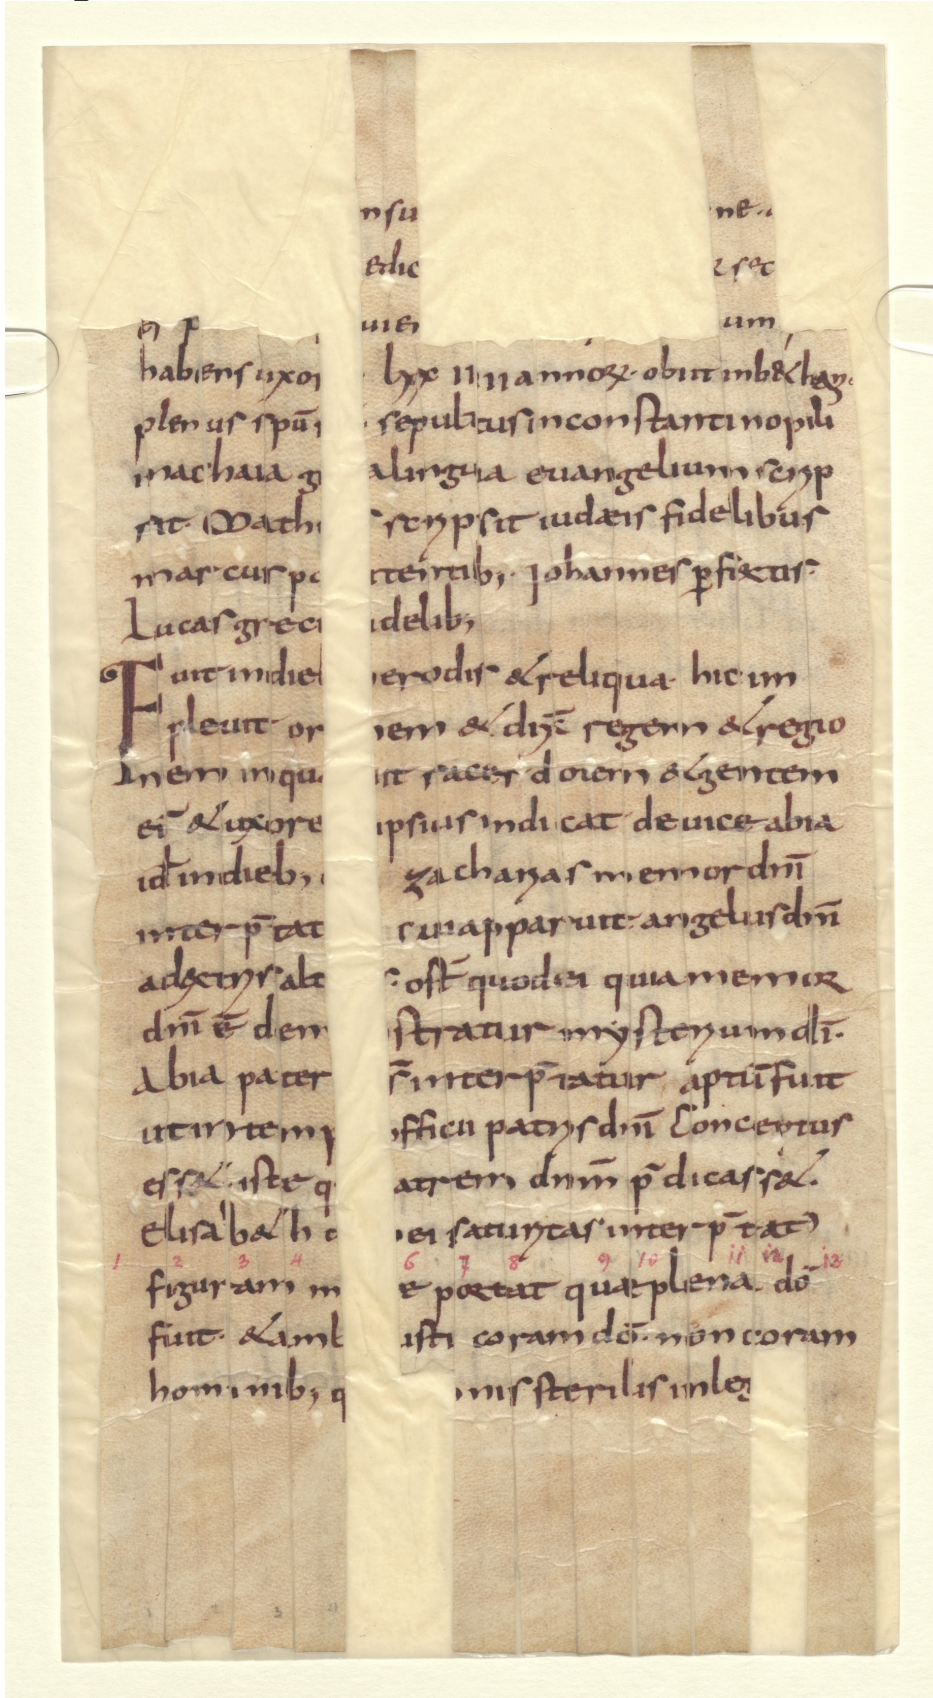 nsu ne.
edic sec
uiei um
habens uxor lxx IIII annorum. obiit in b&han.
plenus spū sepultus in constantinopili
inachaia g alingua euangelium scrip
sit. Math scripsit iudæis fidelibus
marcus po tentib; Iohannes pfectis.
Lucas grec idelib;
Fuit indieb erodis & reliqua. hic im
pleuit or nem & dix regem & regio
nem in qua it sacerdotem & gentem
ei & uxore ipsius indicat de uice abia
id indieb; zacharias memor dnī
interp̄tat cui apparuit angelus dnī
adextris alt ost quod ei quia memor
dnī ē dem stratur mysterium dī.
Abia pater interp̄tatur aptū fuit
ut in temp officii patris dnī Conceptus
ess& iste q atrem dnm̄ p̄dicass&.
Elisab&h d ei saturitas interp̄tat
1 2 3 4 6 7 8 9 10 11 12 13
figuram in e portat quæ plena dō
fuit. & amb isti coram dō. non coram
hominib; q m sterilis in leg